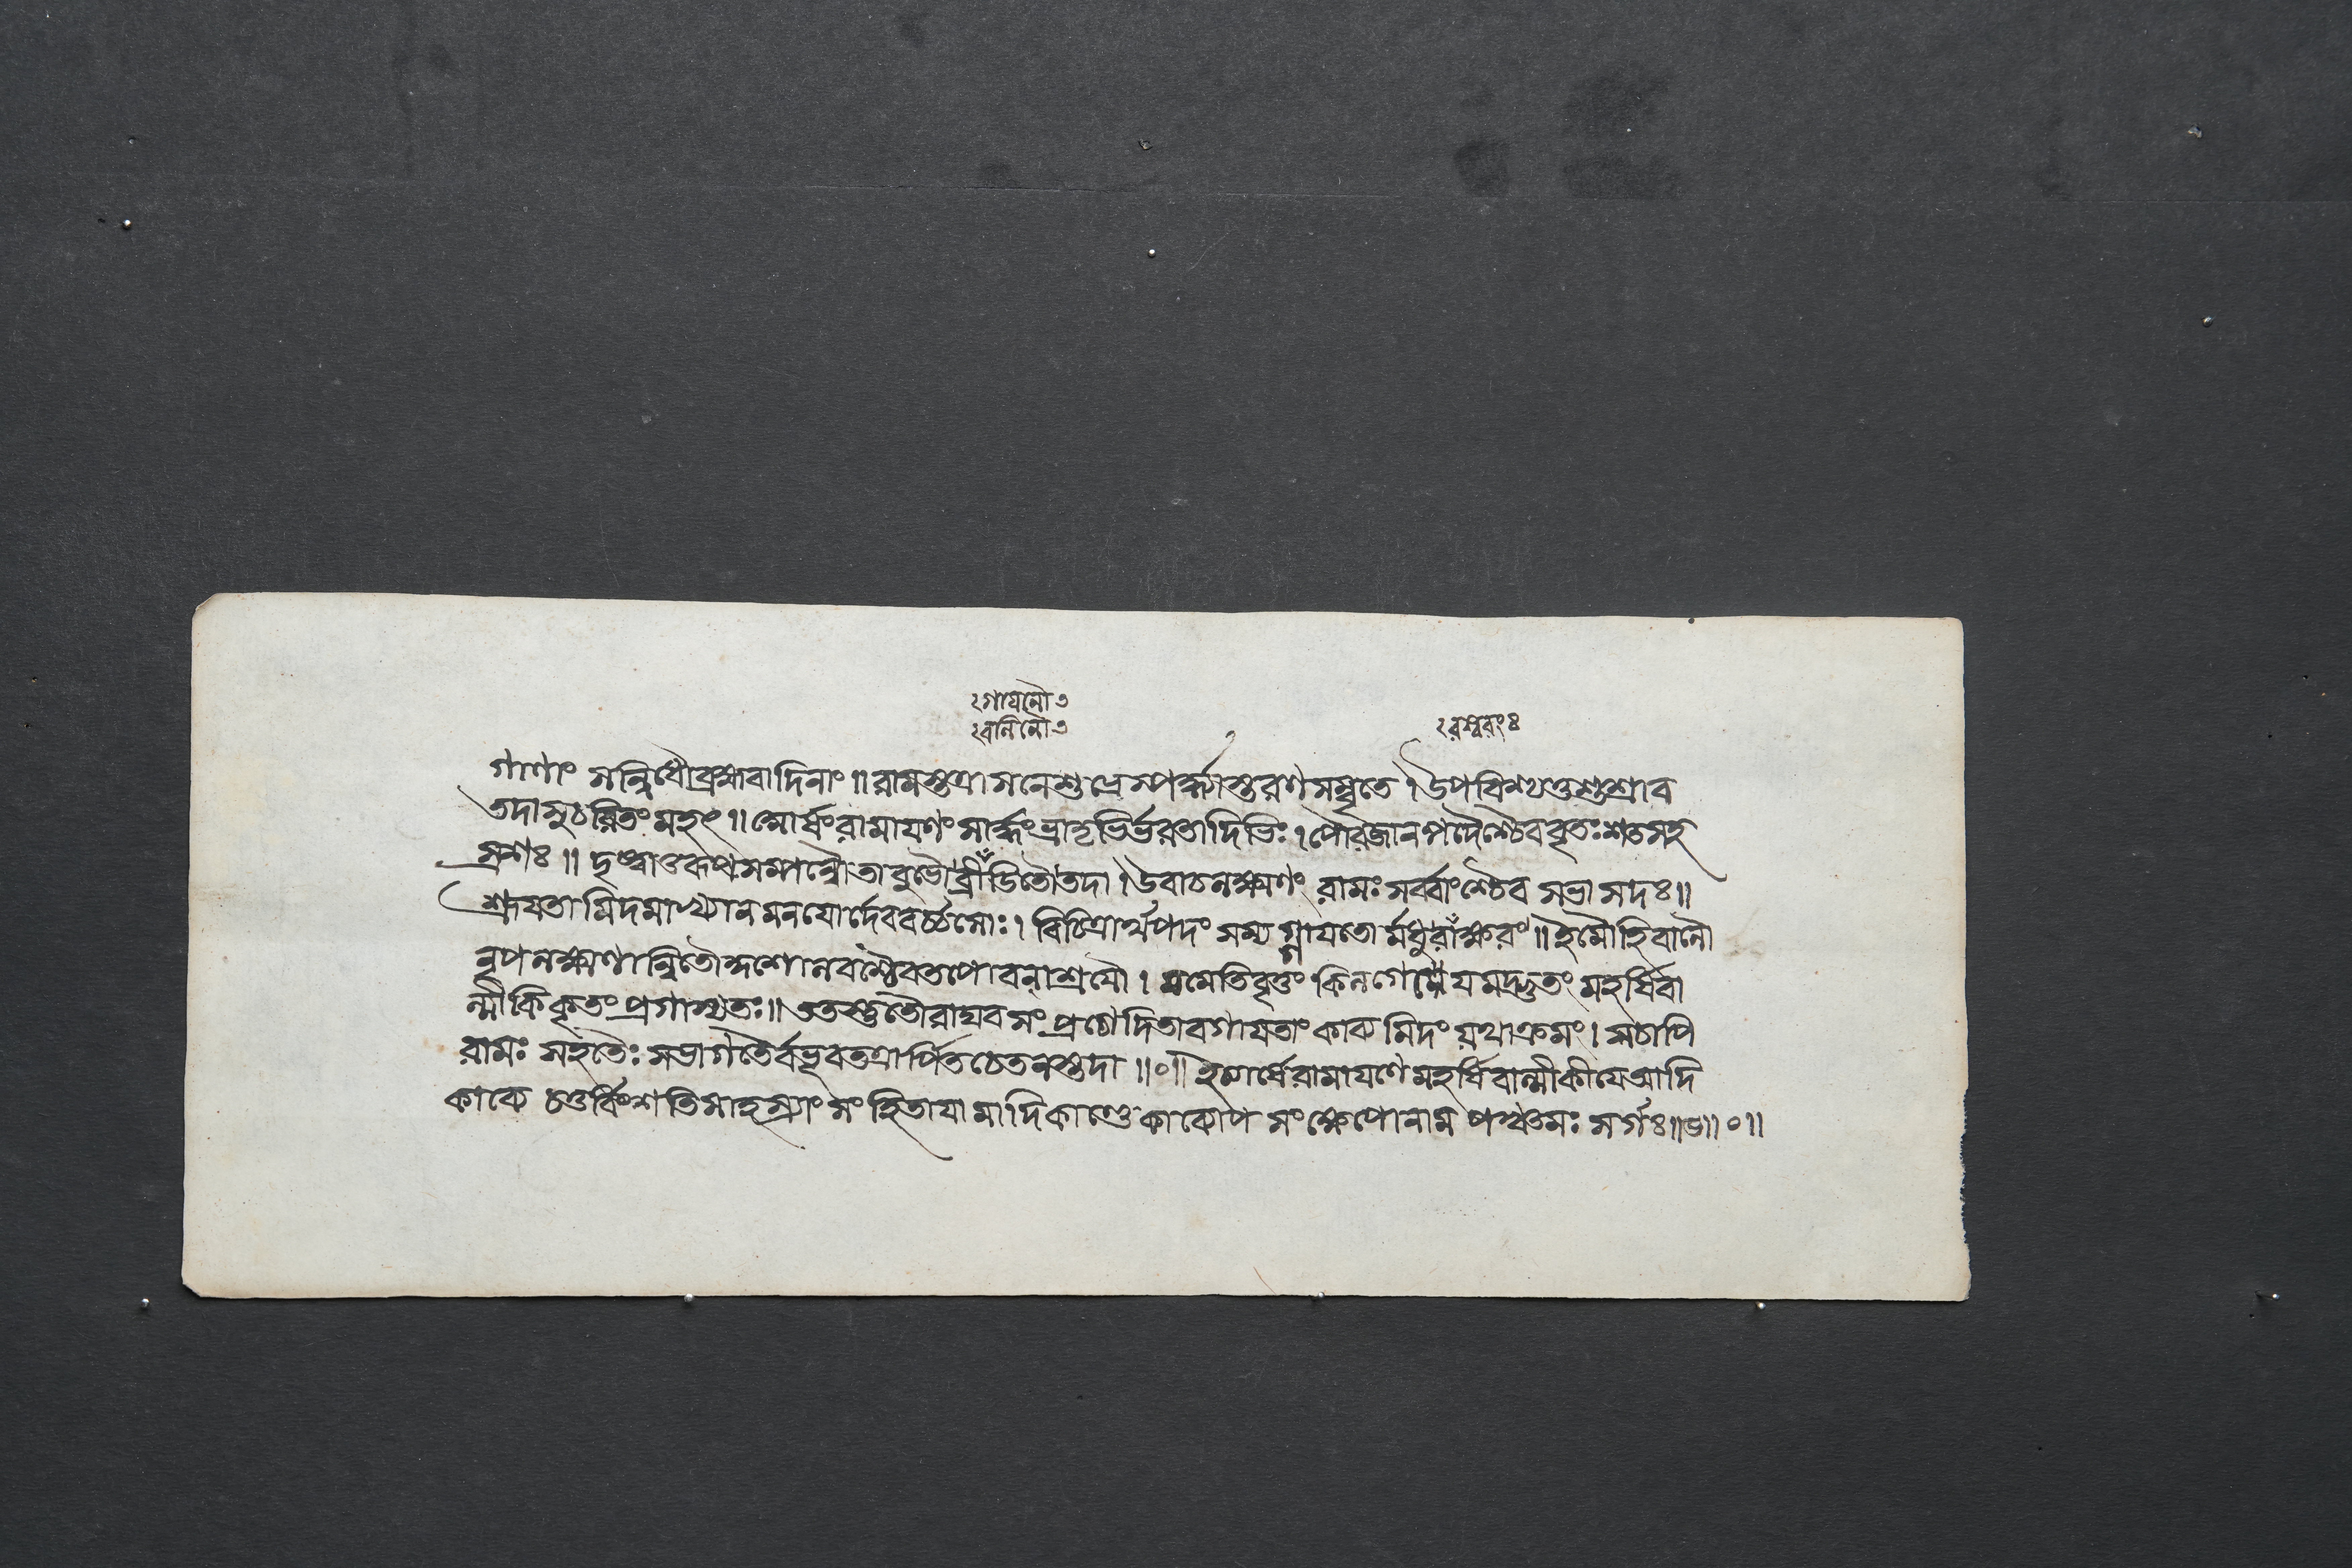 ঃগাযনৌ৩
ঃবালিনৌ৩
ঃরস্বরংঃ
গাণাং সন্নিধৌব্রহ্মবাদিনাং॥রামস্তত্রাসনেশুভ্রেস্পর্দ্ধ্যাস্তরণসম্বৃতে।উপবিশ্যথশুশ্রাব
তদাসুচরিতংমহৎ॥সোর্থংরামাযণং সার্দ্ধংভ্রাতৃভির্ভরতাদিভিঃ।পৌরজানপদৈশ্চৈববৃতঃশতসহ
স্রশঃ॥ দৃষ্ট্বাতুরূপসম্পন্নৌতাবুভৌব্রীডিতৌতদা।উবাচলক্ষ্মণং রামঃসর্ব্বাংশ্চৈব সভাসদঃ॥
শ্রূযতামিদমাখ্যানমনযোর্দেববর্চ্চসোঃ। বিচিত্রার্থপদং সম্যগ্গাযতোর্মধুরাক্ষরং॥ইমৌহিবালৌ
নৃপলক্ষ্মণান্বিতৌ তপোবনাশ্রযৌ। মমেতিবৃত্তং কিল গেযমদ্ভুতং মহর্ষিবা
ল্মীকিকৃতং প্রগাস্যতঃ॥ততস্তুতৌরাঘবসংপ্রচোদিতাবগাযতাংকাব্যমিদং যথাক্রমং।সচাপি
রামঃ সহতৈঃ সভাগতৈর্বভূবতত্রার্পিতচেতনস্তদা॥০॥ইত্যার্ষেরামাযণেমহর্ষিবাল্মীকীযেআদি
কাব্যে চতুর্ব্বিংশতিসাহস্র্যাং সংহিতাযামাদিকাণ্ডেকাব্যোপসংক্ষেপোনাম পঞ্চমঃ সর্গঃ॥৫॥০॥